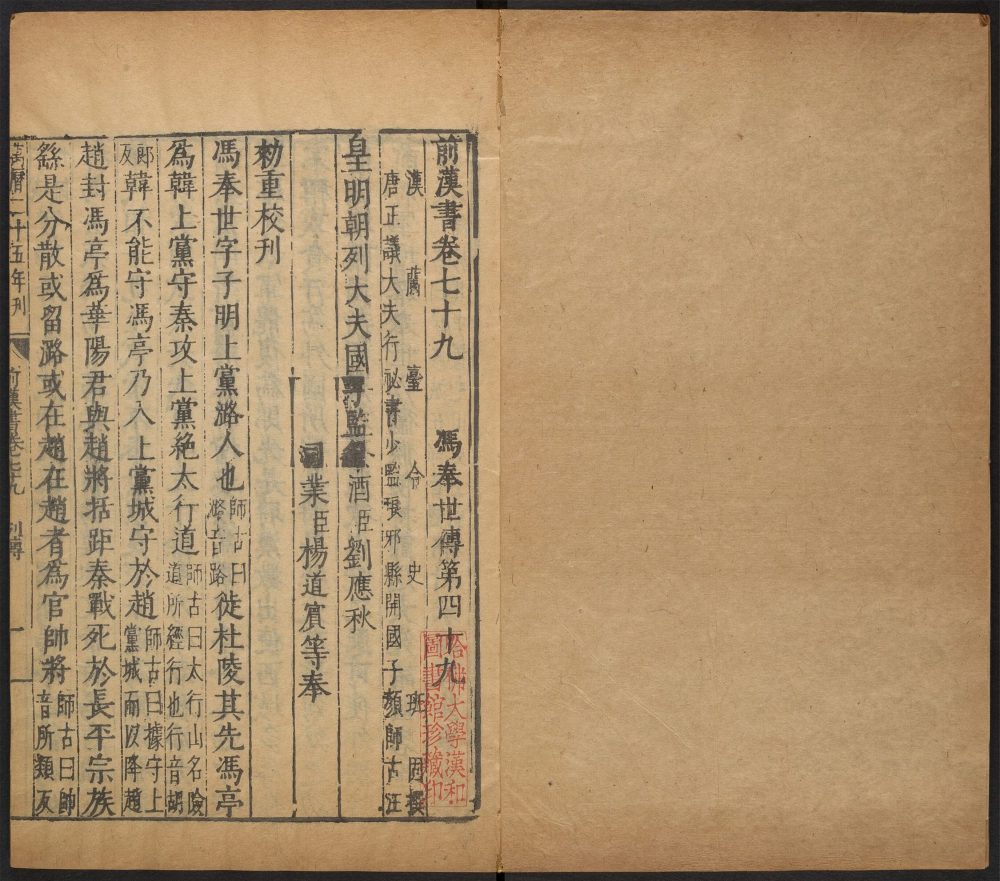 前漢書卷七十九 馮奉世傳第四十九
漢蘭臺令史班固撰
唐正議大夫行祕書少監琅邪縣開國子顏師古注
皇明朝列大夫國子監祭酒臣劉應秋
司業臣楊道賓等奉
勑重校刊
馮奉世字子明上黨潞人也師古曰潞音路徙杜陵其先馮亭
爲韓上黨守秦攻上黨絶太行道師古曰太行山名險道所經行也行音胡
郎反韓不能守馮亭乃入上黨城守於趙師古曰據守上黨城而以降趙
趙封馮亭爲華陽君與趙將括距秦戰死於長平宗族
繇是分散或留潞或在趙在趙者爲官帥將師古曰帥音所類反
萬曆二十五年刊 前漢書卷七十九 列傳 一
哈佛大學漢和
圖書館珍藏印